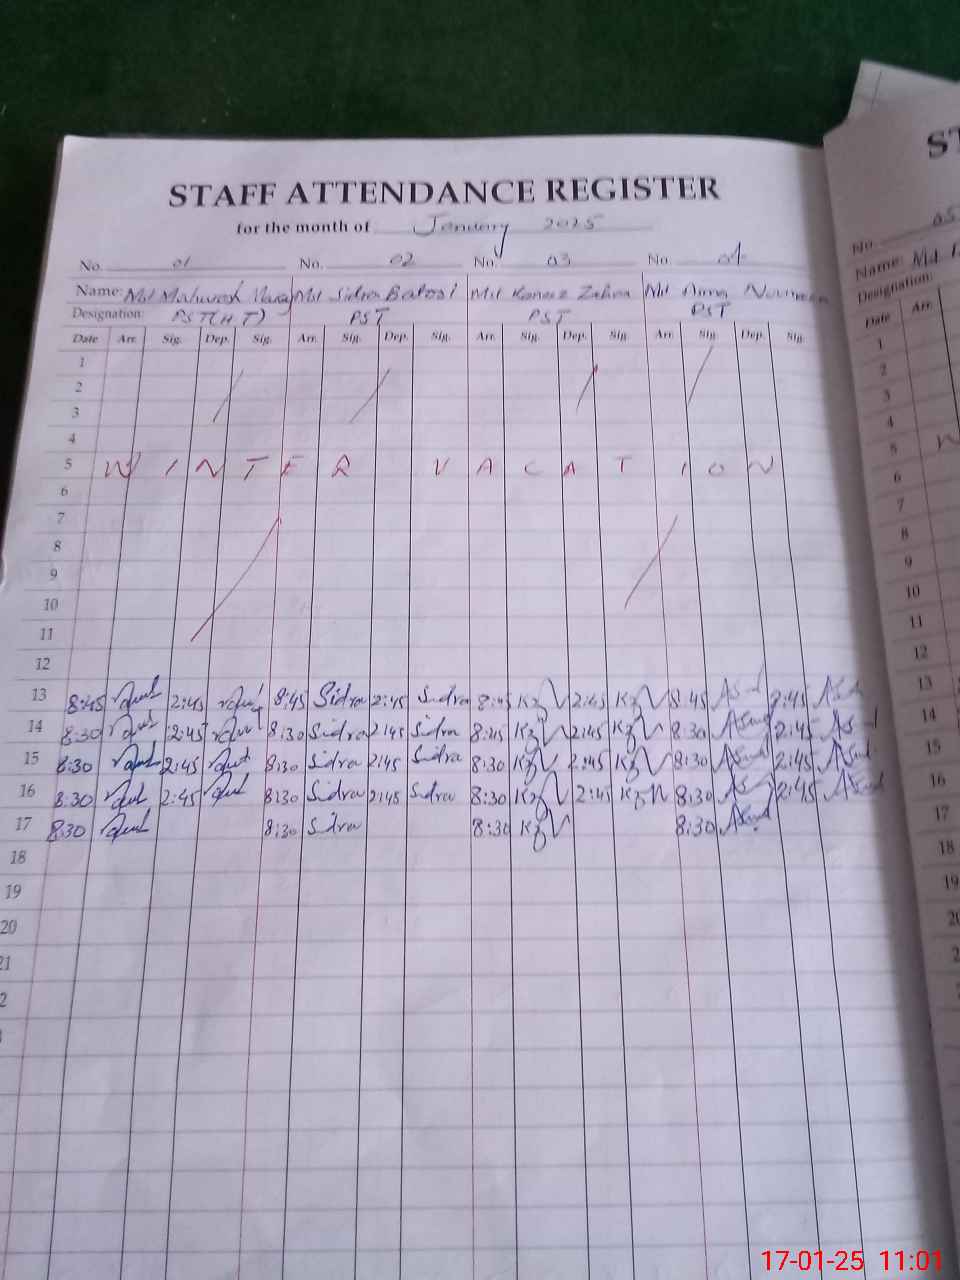 STAFF ATTENDANCE REGISTER
for the month of January 2025
No. 01 No. 02 No. 03 No. 04
Name: Mst Mst Sidra Batool Mst Kaneez Zahra Mst Noureen
Designation: PST(HT) PST PST PST
Date Arr. Sig. Dep. Sig. Arr. Sig. Dep. Sig. Arr. Sig. Dep. Sig. Arr. Sig. Dep. Sig.
1
2
3
4
5 WINTER VACATION
6
7
8
9
10
11
12
13 8:45 2:45 8:45 Sidra 2:45 Sidra 8:45 2:45 8:45 2:45
14 8:30 2:45 8:30 Sidra 2:45 Sidra 8:45 2:45 8:30 2:45
15 8:30 2:45 8:30 Sidra 2:45 Sidra 8:30 2:45 8:30 2:45
16 8:30 2:45 8:30 Sidra 2:45 Sidra 8:30 2:45 8:30 2:45
17 8:30 8:30 Sidra 8:30 8:30
18
19
20
21
2
ST
No. 05
Name: Mst
Designation:
Date Arr.
1
2
3
4
5 W
6
7
8
9
10
11
12
13
14
15
16
17
18
19
20
17-01-25 11:01